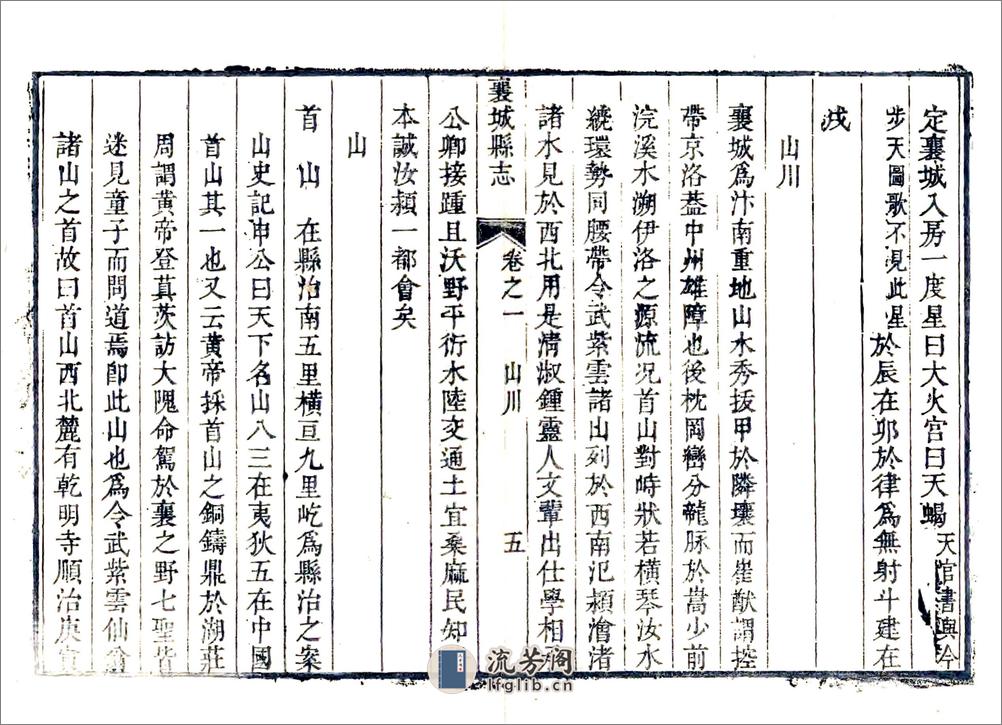 定襄城入房一度星曰大火宮曰天蝎天官書與今
步天圖歌不見此星於辰在卯於律為無射斗建在
戌
山川
襄城為汴南重地山水秀拔甲於隣壤而崔猷謂控
帶京洛葢中州雄障也後枕岡巒分龍脉於嵩少前
浣溪水溯伊洛之源流况首山對峙狀若横琴汝水
繞環勢同腰帶令武紫雲諸山列於西南汜潁澮渚
諸水見於西北用是清淑鍾靈人文輩出仕學相
公卿接踵且沃野平衍水陸交通土宜桑麻民知
本誠汝潁一都會矣
山
首山 在縣治南五里橫亘九里屹為縣治之案
山史記申公曰天下名山八三在夷狄五在中國
首山其一也又云黃帝採首山之銅鑄鼎於湖莊
周謂黃帝登具茨訪大隗命駕於襄之野七聖皆
迷見童子而問道焉卽此山也為令武紫雲仙翁
諸山之首故曰首山西北麓有乾明寺順治庚寅
襄城縣志
卷之一 山川 五
流芳閣
lfglib.cn